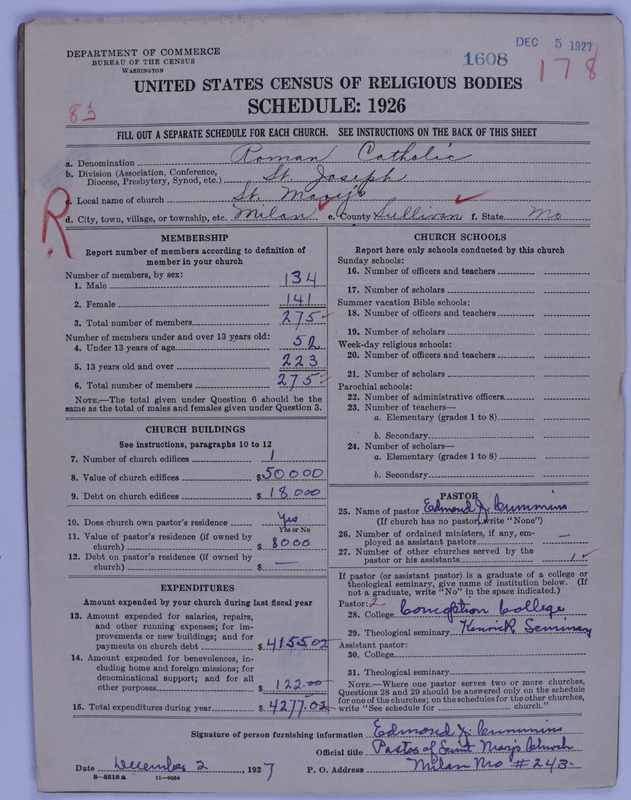 DEC 5 1927
1608
178
DEPARTMENT OF COMMERCE
BUREAU OF THE CENSUS
WASHINGTON
UNITED STATES CENSUS OF RELIGIOUS BODIES
SCHEDULE: 1926
83
FILL OUT A SEPARATE SCHEDULE FOR EACH CHURCH. SEE INSTRUCTIONS ON THE BACK OF THIS SHEET
a. Denomination Roman Catholic
b. Division (Association, Conference, Diocese, Presbytery, Synod, etc.) St. Joseph
c. Local name of church St. Mary's
d. City, town, village, or township, etc. Milan e. County Sullivan f. State Mo
R
MEMBERSHIP
Report number of members according to definition of
member in your church
Number of members, by sex:
1. Male 134
2. Female 141
3. Total number of members 275
Number of members under and over 13 years old:
4. Under 13 years of age 52
5. 13 years old and over 223
6. Total number of members 275
NOTE.—The total given under Question 6 should be the
same as the total of males and females given under Question 3.
CHURCH BUILDINGS
See instructions, paragraphs 10 to 12
7. Number of church edifices 1
8. Value of church edifices $50000
9. Debt on church edifices $18000
10. Does church own pastor's residence Yes
Yes or No
11. Value of pastor's residence (if owned by
church) $8000
12. Debt on pastor's residence (if owned by
church) $ —
EXPENDITURES
Amount expended by your church during last fiscal year
13. Amount expended for salaries, repairs,
and other running expenses; for im-
provements or new buildings; and for
payments on church debt $4155.02
14. Amount expended for benevolences, in-
cluding home and foreign missions; for
denominational support; and for all
other purposes $122.00
15. Total expenditures during year $4277.02
CHURCH SCHOOLS
Report here only schools conducted by this church
Sunday schools:
16. Number of officers and teachers
17. Number of scholars
Summer vacation Bible schools:
18. Number of officers and teachers
19. Number of scholars
Week-day religious schools:
20. Number of officers and teachers
21. Number of scholars
Parochial schools:
22. Number of administrative officers
23. Number of teachers—
a. Elementary (grades 1 to 8)
b. Secondary
24. Number of scholars—
a. Elementary (grades 1 to 8)
b. Secondary
PASTOR
25. Name of pastor Edmond J. Cummins
(If church has no pastor, write "None")
26. Number of ordained ministers, if any, em-
ployed as assistant pastors —
27. Number of other churches served by the
pastor or his assistants 1
If pastor (or assistant pastor) is a graduate of a college or
theological seminary, give name of institution below. (If
not a graduate, write "No" in the space indicated.)
Pastor: 2
28. College Conception College
29. Theological seminary Kenrick Seminary
Assistant pastor:
30. College
31. Theological seminary
NOTE.—Where one pastor serves two or more churches,
Questions 28 and 29 should be answered only on the schedule
for one of the churches; on the schedules for the other churches,
write "See schedule for church."
Signature of person furnishing information Edmond J. Cummins
Official title Pastor of Saint Mary's Church
Date December 2, 1927 P. O. Address Milan Mo # 243.
8—5518 a 11—9054